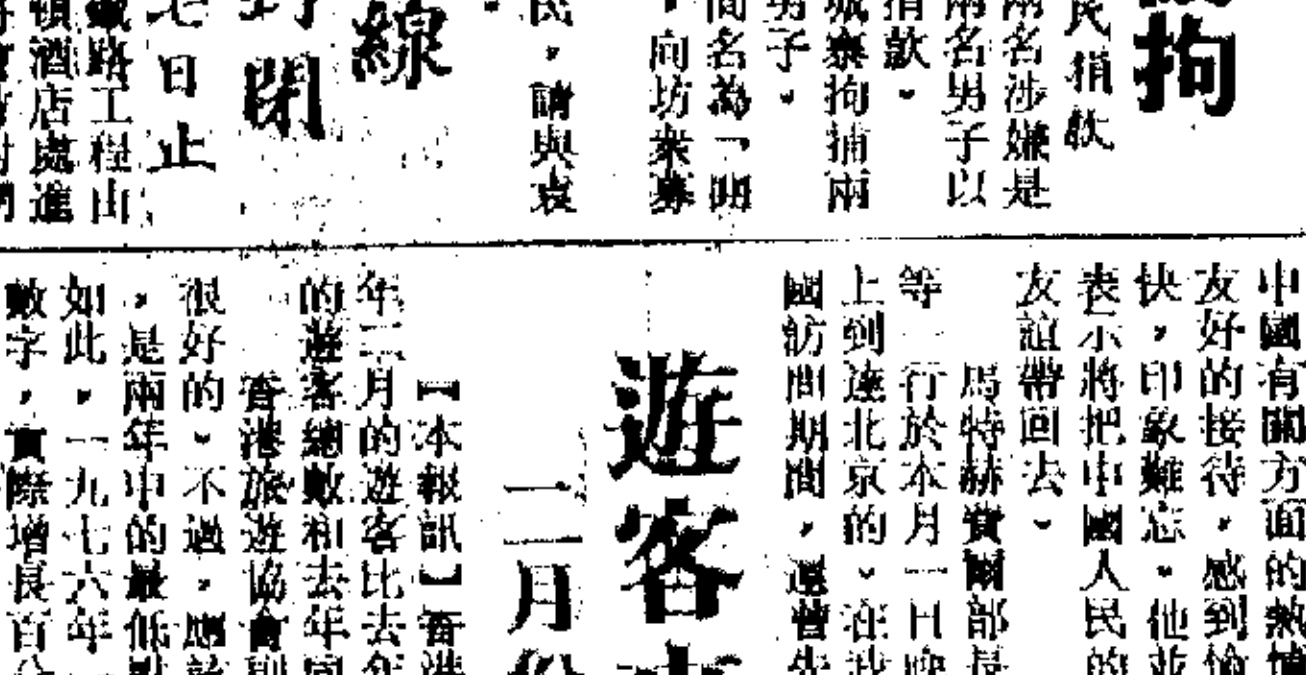 拘
民捐款
兩名涉嫌是
兩名男子以
捐款。
城寨拘捕兩
男子。
間名為「開
，向坊衆募
民，請與袁
線
封閉
七日止
鐵路工程由
頓酒店處進
中國有關方面的熱情
友好的接待，感到愉
快，印象難忘。他並
表示將把中國人民的
友誼帶回去。
馬特赫賚爾部長
等一行於本月一日晚
上到達北京的。在我
國訪問期間，還曾先
遊客
二月份
【本報訊】香港
年二月的遊客比去年
的遊客總數和去年同
香港旅遊協會則
很好的。不過，應該
，是兩年中的最低點
如此，一九七六年
數字，實際增長百分